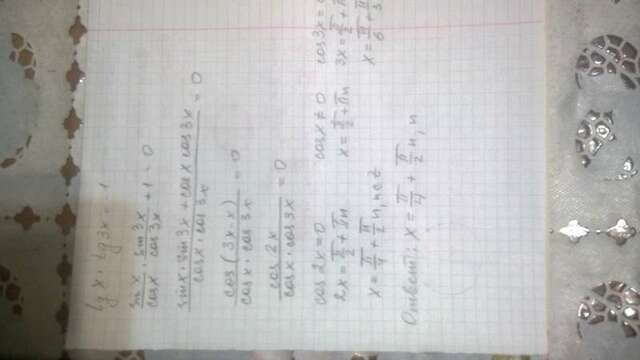 tg x · tg 3x = -1
sin x / cos x · sin 3x / cos 3x + 1 = 0
sin x · sin 3x + cos x cos 3x / cos x · cos 3x = 0
cos (3x - x) / cos x · cos 3x = 0
cos 2x / cos x · cos 3x = 0
cos 2x = 0 cos x ≠ 0 cos 3x
2x = π/2 + πn x = π/2 + πn 3x = π/2 +
x = π/4 + π/2 n, n∈Z x = π/6 + π/3
Ответ: x = π/4 + π/2 n, n